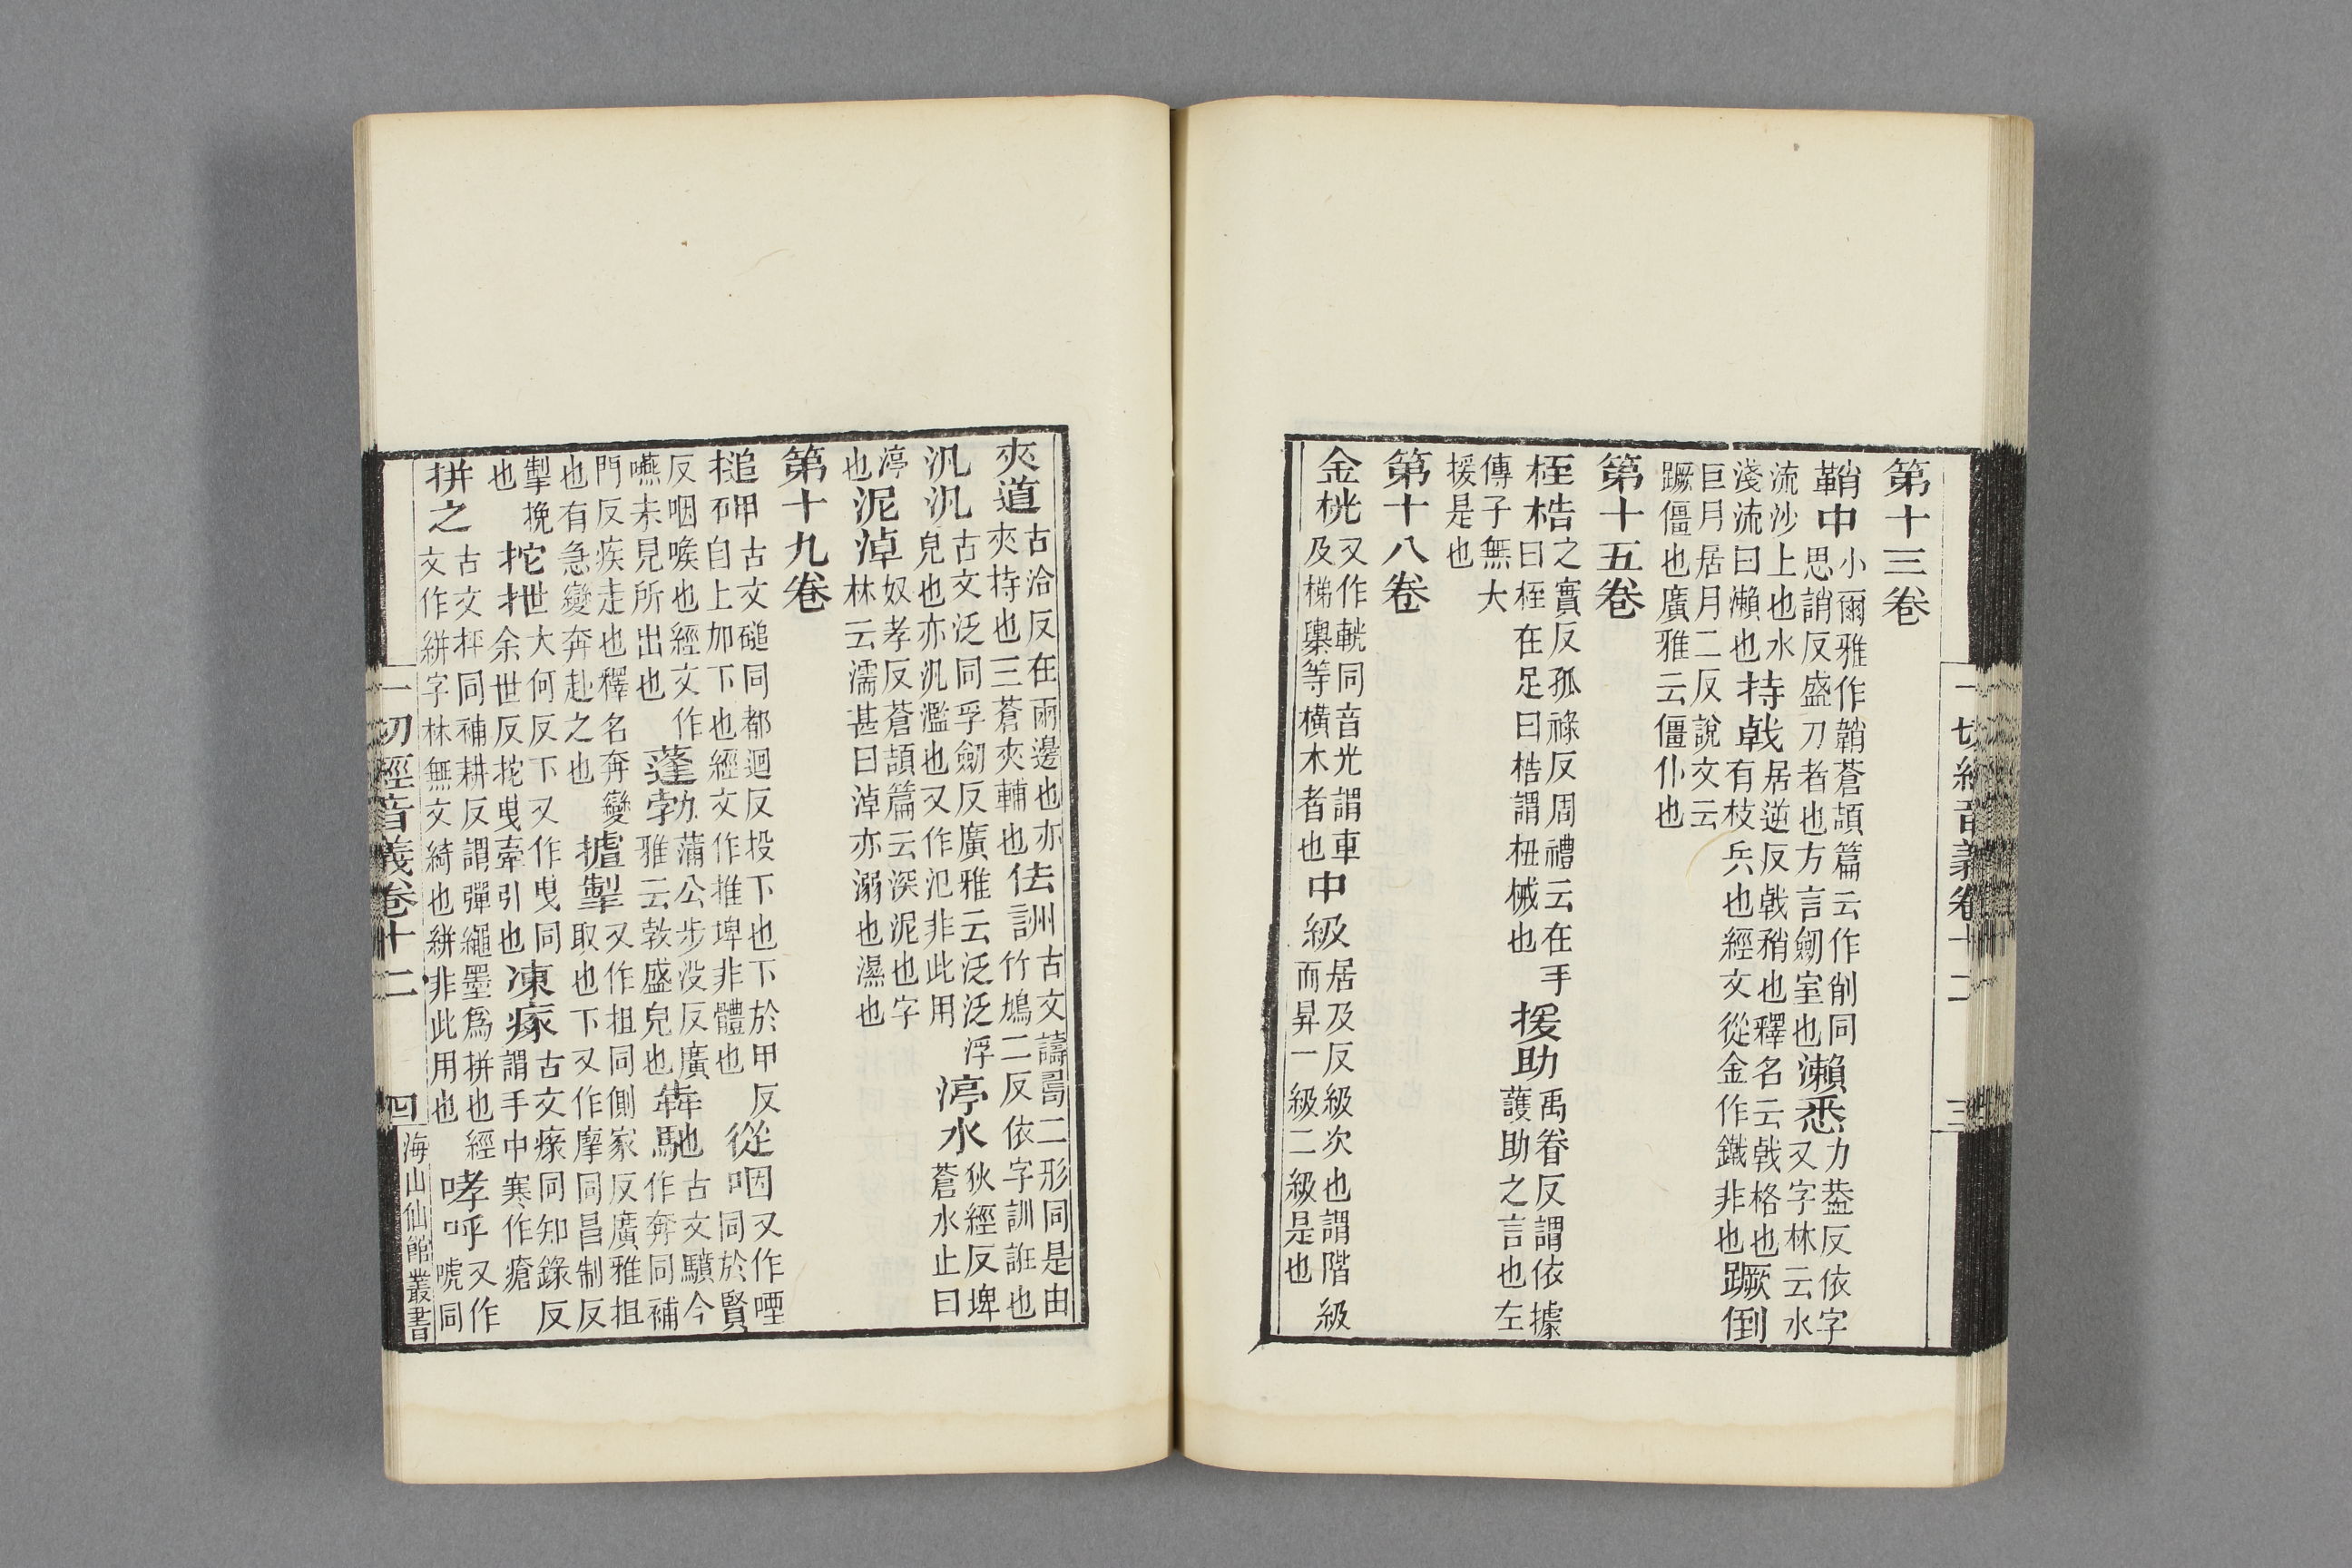 第十三卷
鞘中小爾雅作鞘蒼頡篇云作削同思誚反盛刀者也方言劒室也瀨悉力葢反依字又字林云水
流沙上也水淺流曰瀨也持戟居逆反戟矟也釋名云戟格也有枝兵也經文從金作鐵非也蹶倒
巨月居月二反說文云蹶僵也廣雅云僵仆也
第十五卷
桎梏之實反孤祿反周禮云在手曰桎在足曰梏謂杻械也援助禹眷反謂依據護助之言也左
傳子無大援是也
第十八卷
金桄又作輄同音光謂車及梯轝等橫木者也中級居及反級次也謂階級而昇一級二級是也
夾道古洽反在兩邊也亦夾持也三蒼夾輔也佉詶古文譸𠷎二形同是由竹鳩二反依字訓誑也
汎汎古文泛同孚劒反廣雅云泛泛浮皃也亦汎濫也又作氾非此用渟水狄經反埤蒼水止曰
渟也泥淖奴孝反蒼頡篇云深泥也字林云濡甚曰淖亦溺也濕也
第十九卷
搥砷古文磓同都迴反投下也下於甲反自上加下也經文作推埤非體也從咽又作㖶同於賢
反咽喉也經文作嚥未見所出也蓬勃蒲公步没反廣雅云㪍盛皃也犇馳古文驞今作奔同補
門反疾走也釋名奔變也有急變奔赴之也摣掣又作抯同側家反廣雅抯取也下又作摩同昌制反
掣挽也拕抴大何反下又作曳同余世反拕曳牽引也凍瘃古文㾭同知錄反謂手中寒作瘡
拼之古文枰同補耕反謂彈繩墨爲拼也經文作絣字林無文綺也絣非此用也哮呼又作唬同
一切經音義卷十二
三
一切經音義卷十二
四
海山仙館叢書